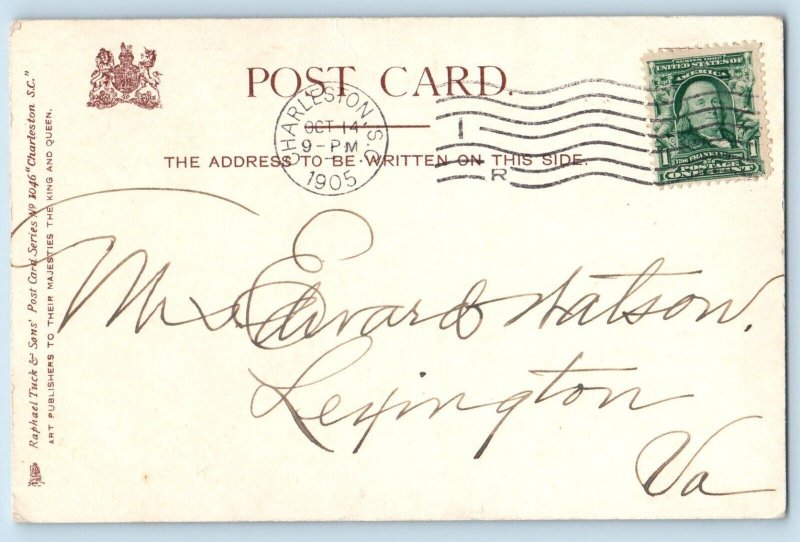 POST CARD.
CHARLESTON, S.C.
OCT 14
9-PM
1905
1
R
THE ADDRESS TO BE WRITTEN ON THIS SIDE.
SERIES 1902
UNITED STATES OF
AMERICA
FRANKLIN
1 POSTAGE 1
ONE CENT
Mrs Edward Watson.
Lexington
Va
Raphael Tuck & Sons' Post Card Series Nº 1046 "Charleston S.C."
ART PUBLISHERS TO THEIR MAJESTIES THE KING AND QUEEN.